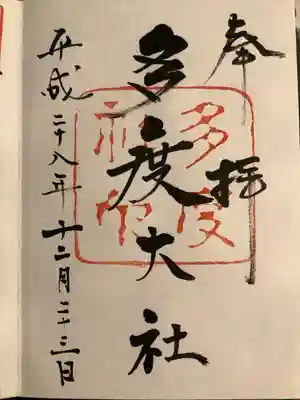 奉拝
多度大社
平成二十八年十二月二十三日
多度
神印